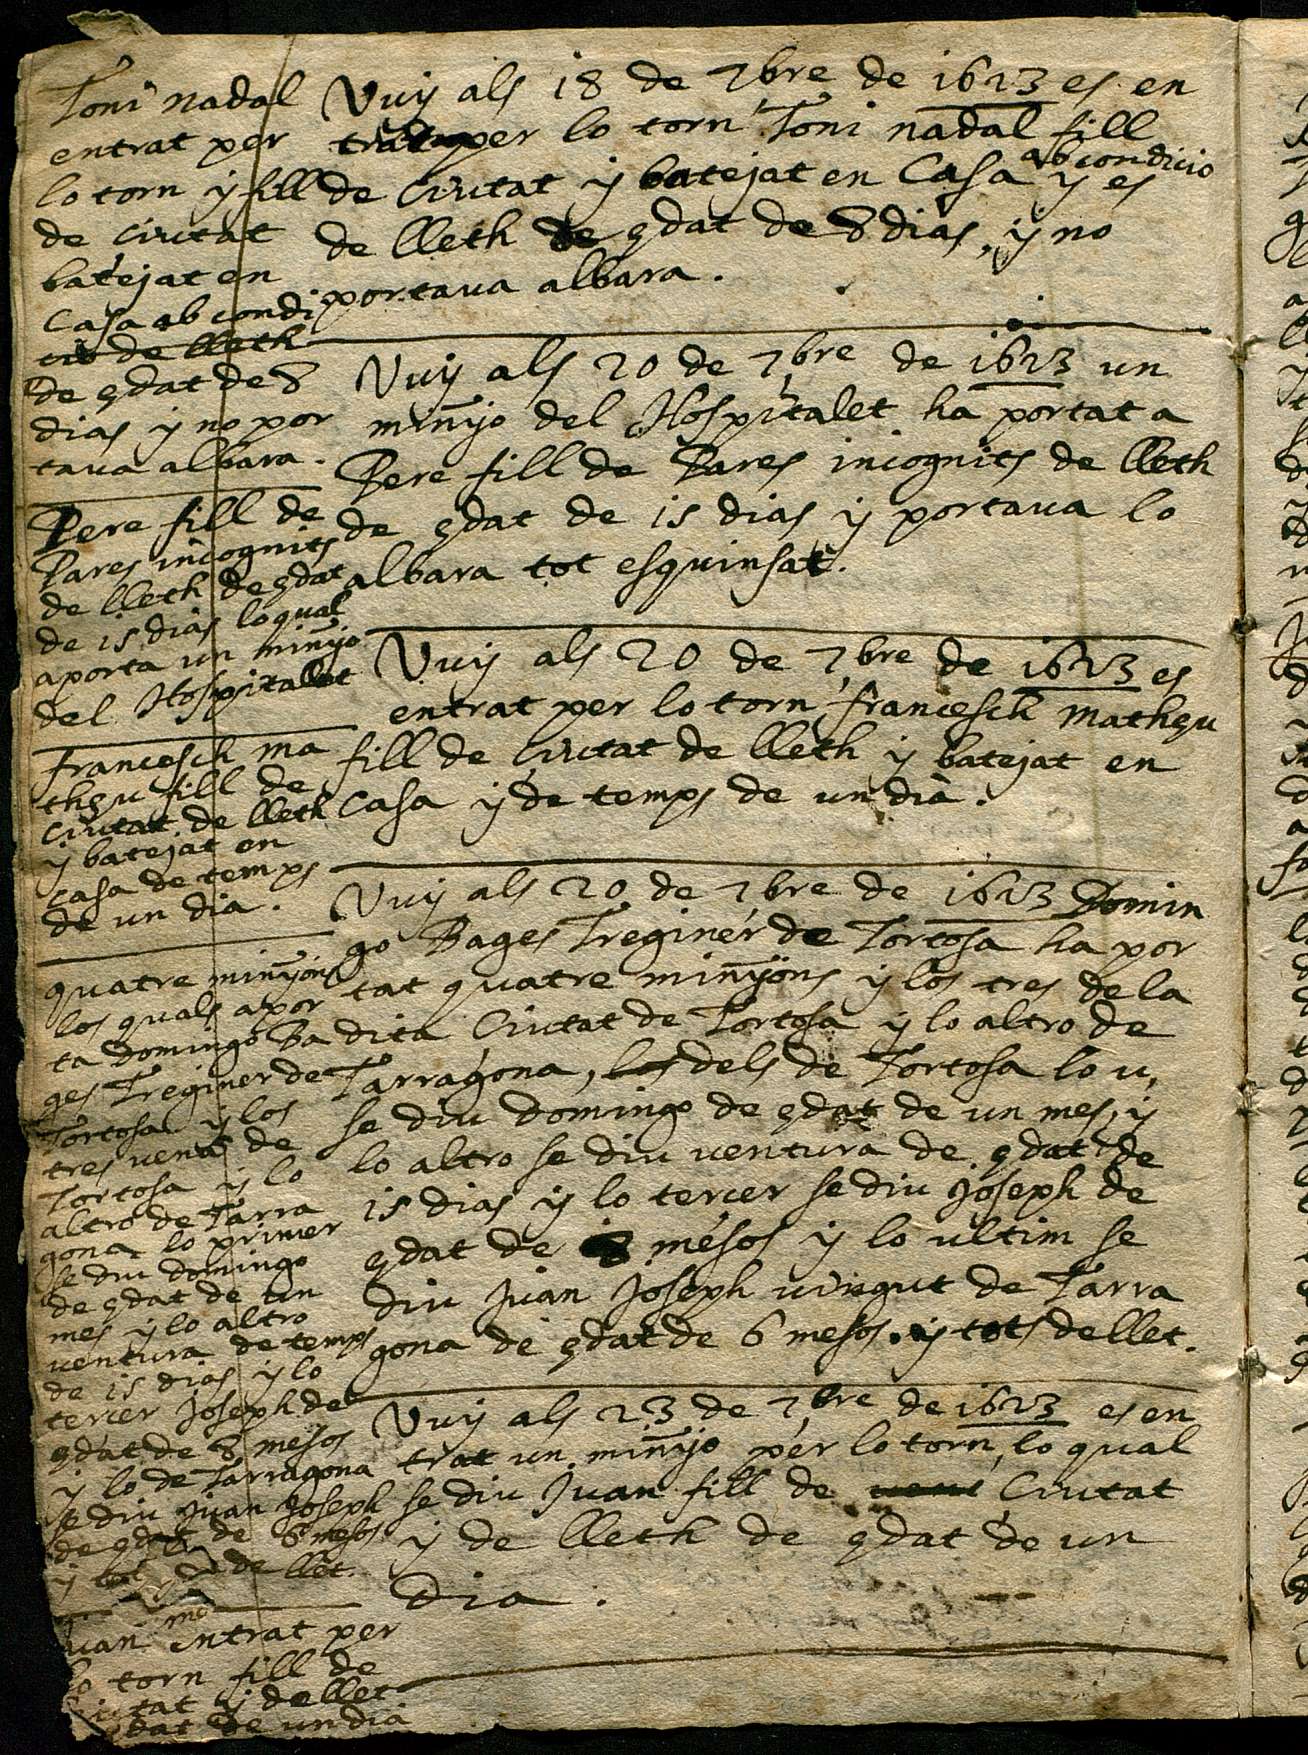 Toni nadal
entrat per
lo torn y fill
de Ciutat
batejat en
Casa ab condi
cio de lleth
de edat de 8
dias y no por
tava albara.
Pere fill de
Pares incognits
de lleth de edat
de 15 dias lo qual
aporta un minyo
del Hospitalet
francesch ma
theu fill de
Ciutat de lleth
y batejat en
Casa de temps
de un dia.
quatre minyóns
los quals apor
ta Domingo Ba
ges Treginer de
Tortosa y los
tres venā de
Tortosa y lo
altro de Tarra
gona lo primer
se diu domingo
de edat de un
mes y lo altro
ventura de temps
de 15 dias y lo
tercer Joseph de
edat de 8 mesos
y lo de Tarragona
se diu Juan Joseph
de edat de 6 mesos
y tot de llet.
Juan entrat per
lo torn fill de
Ciutat y de llet
edat de un dia
Vuy als 18 de 7bre de 1623 es en
trat per lo torn Toni nadal fill
de Ciutat y batejat en Casa ab condicio y es
de lleth de edat de 8 dias, y no
portava albara.
Vuy als 20 de 7bre de 1623 un
minyo del Hospitalet ha portat a
Pere fill de Pares incognits de lleth
de edat de 15 dias y portava lo
albara tot esquinsat.
Vuy als 20 de 7bre de 1623 es
entrat per lo torn francesch matheu
fill de Ciutat de lleth y batejat en
Casa y de temps de un dia.
Vuy als 20 de 7bre de 1623 Domin
go Bages Treginér de Tortosa ha por
tat quatre minyons y los tres de la
dita Ciutat de Tortosa y lo altro de
Tarragona, los dels de Tortosa lo u,
se diu Domingo de edat de un mes, y
lo altro se diu ventura de edat de
15 dias y lo tercer se diu Joseph de
edat de 8 mésos y lo ultim se
diu Juan Joseph vingut de Tarra
gona de edat de 6 mesos. y tots de llet.
Vuy als 23 de 7bre de 1623 es en
trat un minyo per lo torn, lo qual
se diu Juan fill de Ciutat
y de lleth de edat de un
dia.